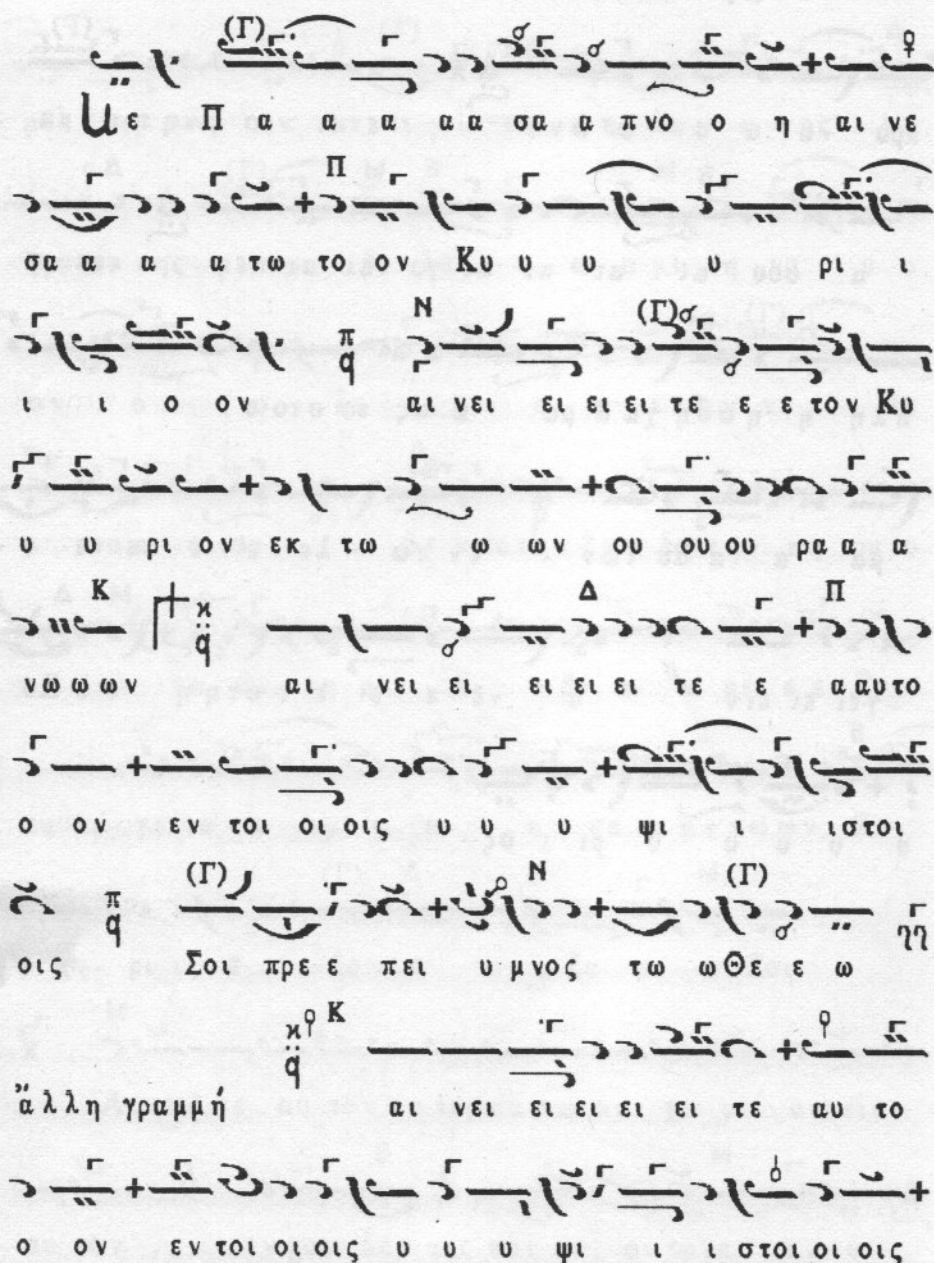 (Γ)
Πε Π α α α α α σα α πνο ο η αι νε
Π
σα α α α τω το ον Κυ υ υ υ ρι ι
Ν (Γ)
ι ι ο ον π q αι νει ει ει ει τε ε ε τον Κυ
υ υ ρι ον εκ τω ω ων ου ου ου ρα α α
Κ Δ Π
νω ω ων αι νει ει ει ει ει τε ε α αυτο
ο ον εν τοι οι οις υ υ υ ψι ι ιστοι
(Γ) Ν (Γ)
οις π q Σοι πρε ε πει υ μνος τω ω Θε ε ω ηη
Κ
ἄλλη γραμμή αι νει ει ει ει ει τε αυ το
ο ον εν τοι οι οις υ υ υ ψι ι στοι οι οις